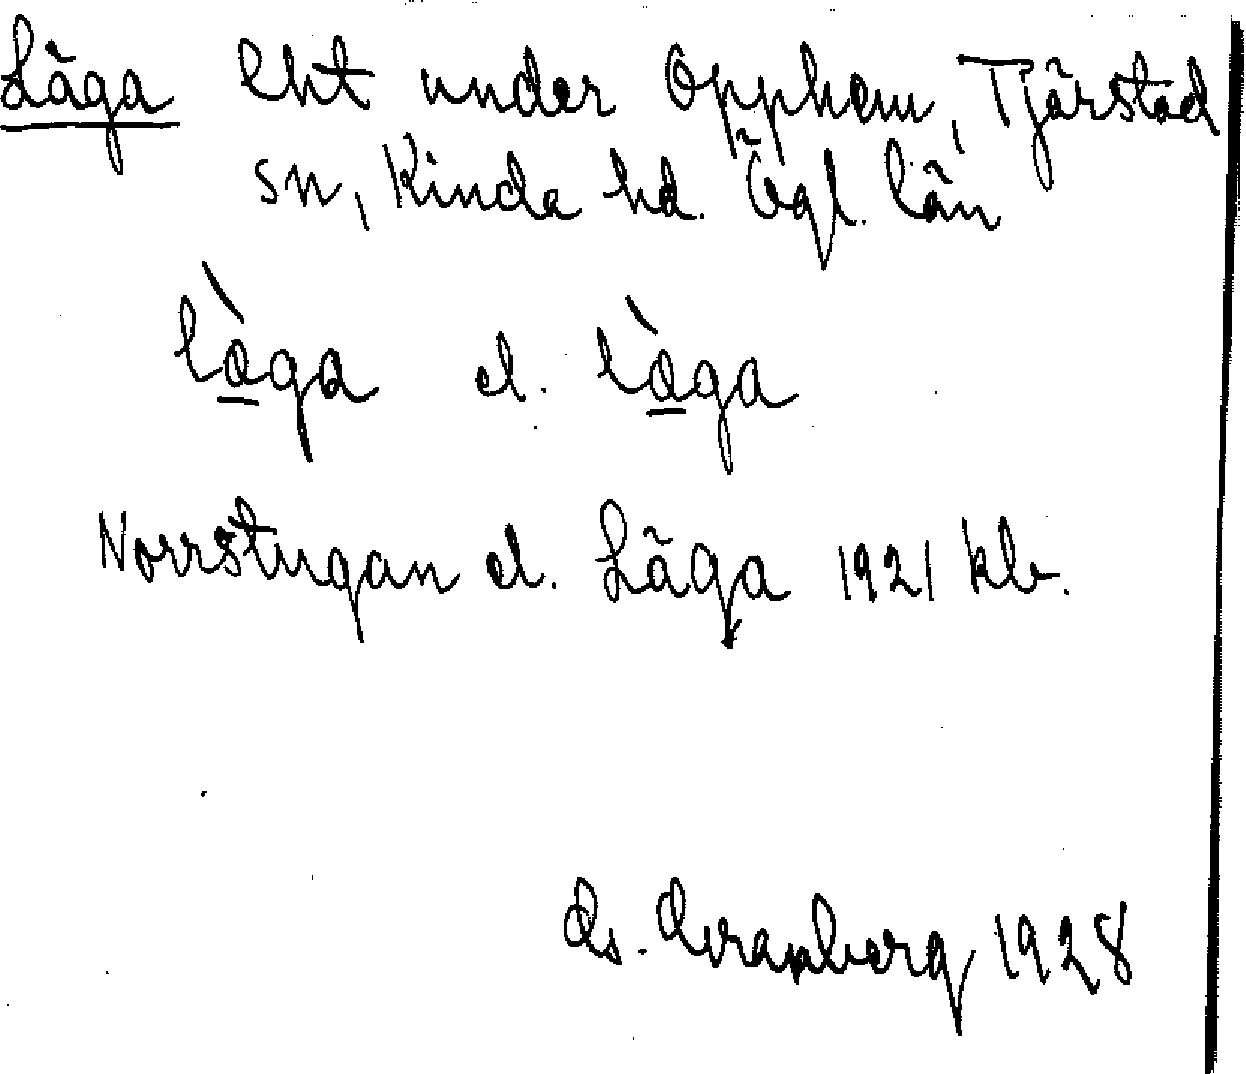 Läga lht under Opphem, Tjärstad
sn, Kinda hd. Ögl. län
làga el. làga
Norrstugan el. Läga 1921 kb.
1928